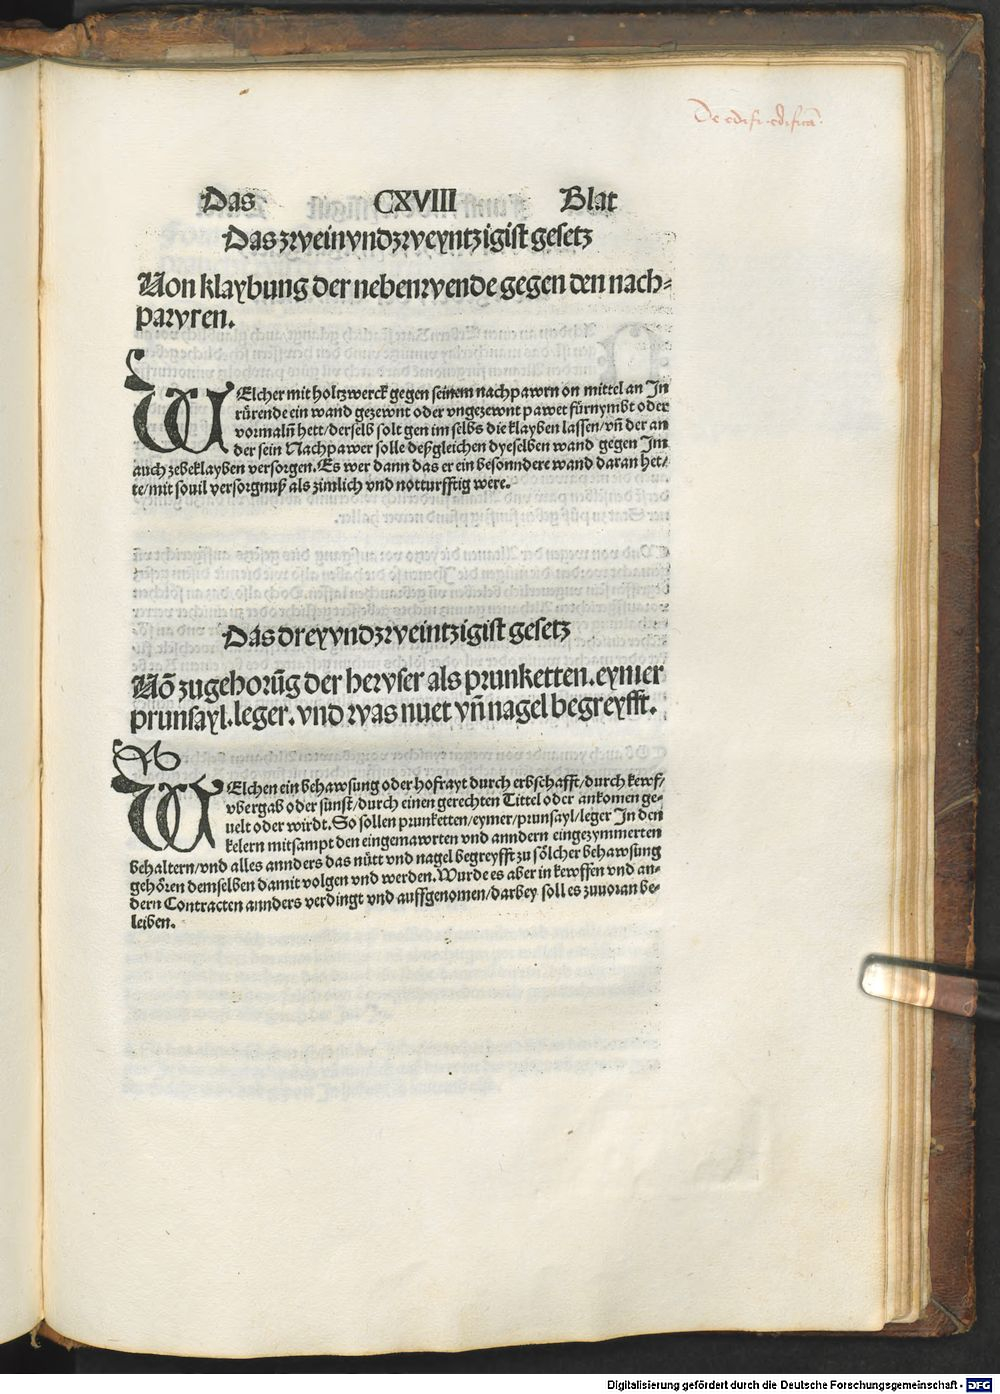 De edifi. edificā.
Das CXVIII Blat
Das zweinvndzweyntzigist gesetz
Von klaybung der nebenwende gegen den nach-
pawren.
WElcher mit holtzwerck gegen seinem nachpawrn on mittel an Jn
rürende ein wand gezewnt oder vngezewnt pawet fürnymbt oder
vormaln̄ hett/derselb solt gen im selbs die klayben lassen/vn̄ der an
der sein Nachpawer solle deßgleichen dyeselben wand gegen Jm
auch zebeklayben versorgen. Es wer dann das er ein besonndere wand daran het/
te/mit souil versorgnuß als zimlich vnd notturfftig were.
Das dreyvndzweintzigist gesetz
Vō zugehorūg der hewser als prunketten. eymer
prunsayl. leger. vnd was nuet vn̄ nagel begreyfft.
WElchen ein behawsung oder hofrayt durch erbschafft/durch kewf/
vbergab oder sunst/durch einen gerechten Tittel oder ankomen ge-
uelt oder wirdt. So sollen prunketten/eymer/prunsayl/leger Jn den
kelern mitsampt den eingemawrten vnd anndern eingezymmerten
behaltern/vnd alles annders das nůtt vnd nagel begreyfft zu sölcher behawsung
gehören demselben damit volgen vnd werden. Wurde es aber in kewffen vnd an-
dern Contracten annders verdingt vnd auffgenomen/darbey soll es zuuoran be-
leiben.
Digitalisierung gefördert durch die Deutsche Forschungsgemeinschaft - DFG